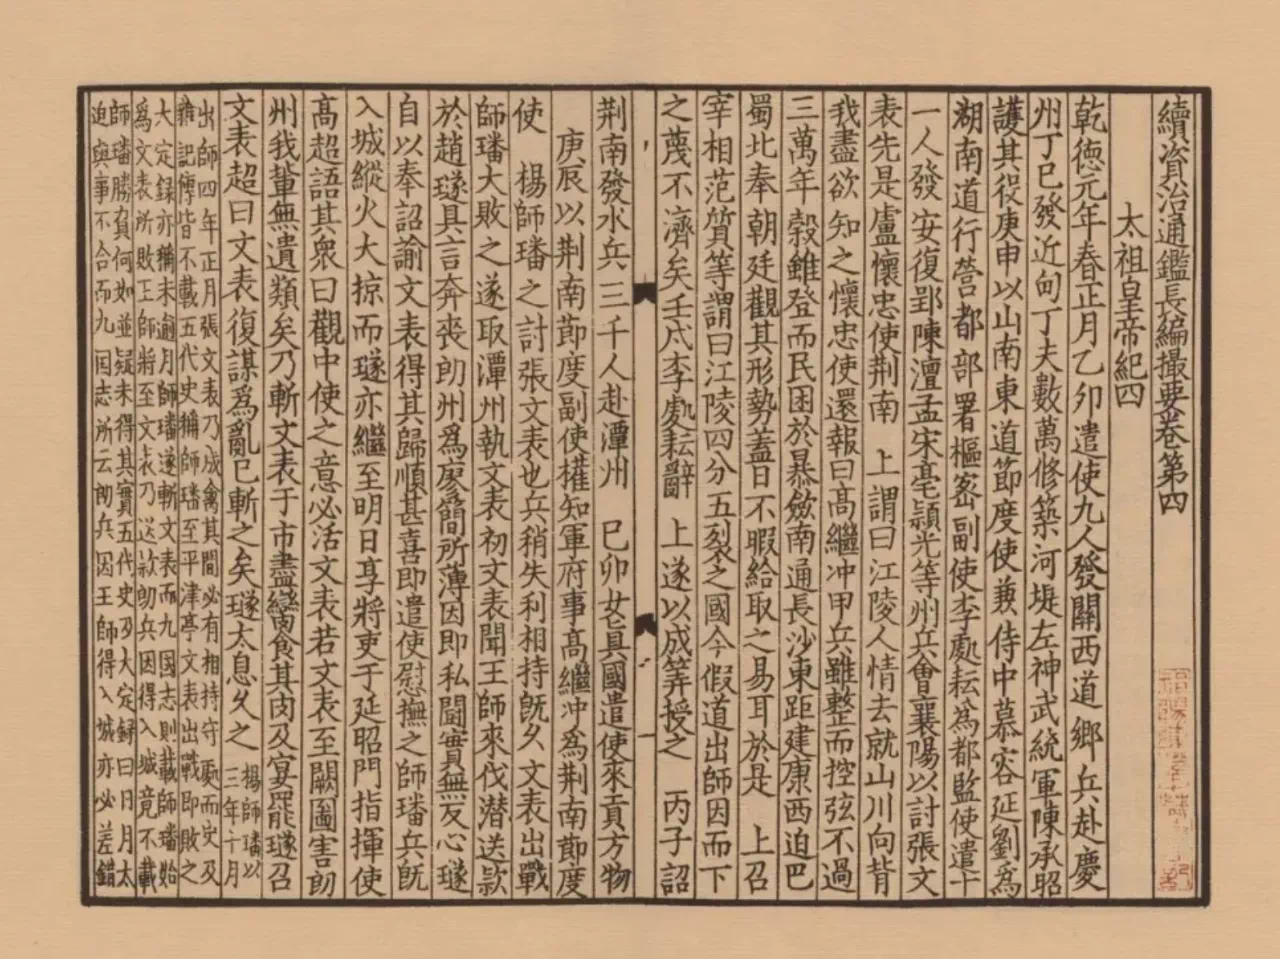 續資治通鑑長編撮要卷第四
太祖皇帝紀四
乾德元年春正月乙卯遣使九人發關西道鄉兵赴慶
州丁巳發近甸丁夫數萬修築河堤左神武統軍陳承昭
護其役庚申以山南東道節度使兼侍中慕容延劉為
湖南道行營都部署樞密副使李處耘為都監使遣十
一人發安復郢陳澶孟宋亳潁光等州兵會襄陽以討張文
表先是盧懷忠使荆南 上謂曰江陵人情去就山川向背
我盡欲知之懷忠使還報曰高繼冲甲兵雖整而控弦不過
三萬年穀雖登而民困於暴斂南通長沙東距建康西迫巴
蜀北奉朝廷觀其形勢蓋日不暇給取之易耳於是 上召
宰相范質等謂曰江陵四分五裂之國今假道出師因而下
之蔑不濟矣壬戌李處耘辭 上遂以成筭授之 丙子詔
荆南發水兵三千人赴潭州 己卯女真國遣使來貢方物
庚辰以荆南節度副使權知軍府事高繼冲為荆南節度
使 楊師璠之討張文表也兵稍失利相持既久文表出戰
師璠大敗之遂取潭州執文表初文表聞王師來伐潜送款
於趙璲具言奔喪朗州為廖簡所薄因即私鬬實無反心璲
自以奉詔諭文表得其歸順甚喜即遣使慰撫之師璠兵既
入城縱火大掠而璲亦繼至明日享將吏于延昭門指揮使
高超語其衆曰觀中使之意必活文表若文表至闕圖害朗
州我軰無遺類矣乃斬文表于市盡臠食其肉及宴罷璲召
文表超曰文表復謀為亂已斬之矣璲太息久之 楊師璠以三年十月
出師四年正月張文表乃成禽其間必有相持守處而史及
雜記傳皆不載五代史稱師璠至平津亭文表出戰即敗之
大定録亦稱未逾月師璠遂斬文表而九國志則載師璠始
為文表所敗王師將至文表乃送款朗兵因得入城竟不載
師璠勝負何如並疑未得其實五代史乃大定録曰月太
迫與事不合而九國志所云朗兵因王師得入城亦必差錯